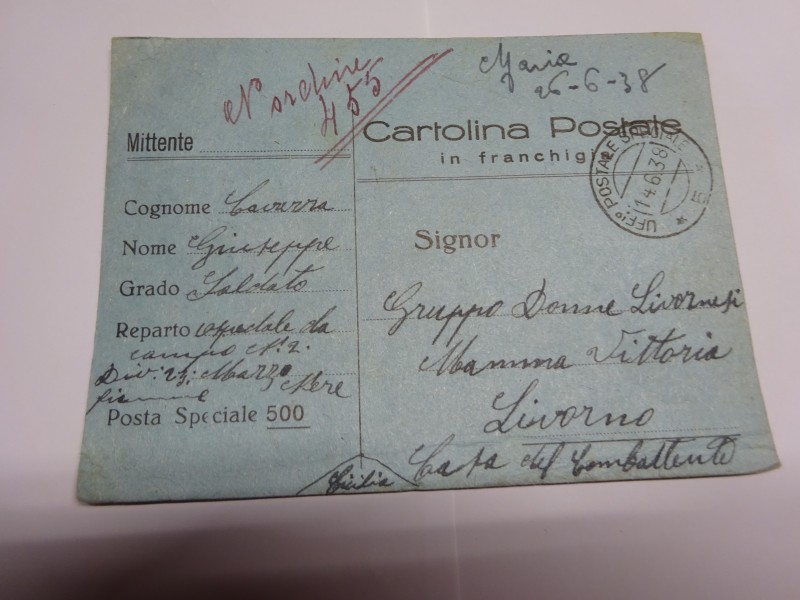 N ordine
455
Maria
26-6-38
Mittente
Cartolina Postale
in franchigi
UFFIO POSTALE SPECIALE
14.6.38
Cognome Cavarra
Nome Giuseppe
Grado Soldato
Reparto ospedale da
campo N. 2.
Div: 23; Marzo
fiamme Nere
Posta Speciale 500
Signor
Gruppo Donne Livornesi
Mamma Vittoria
Livorno
Casa del Combattente
Sicilia